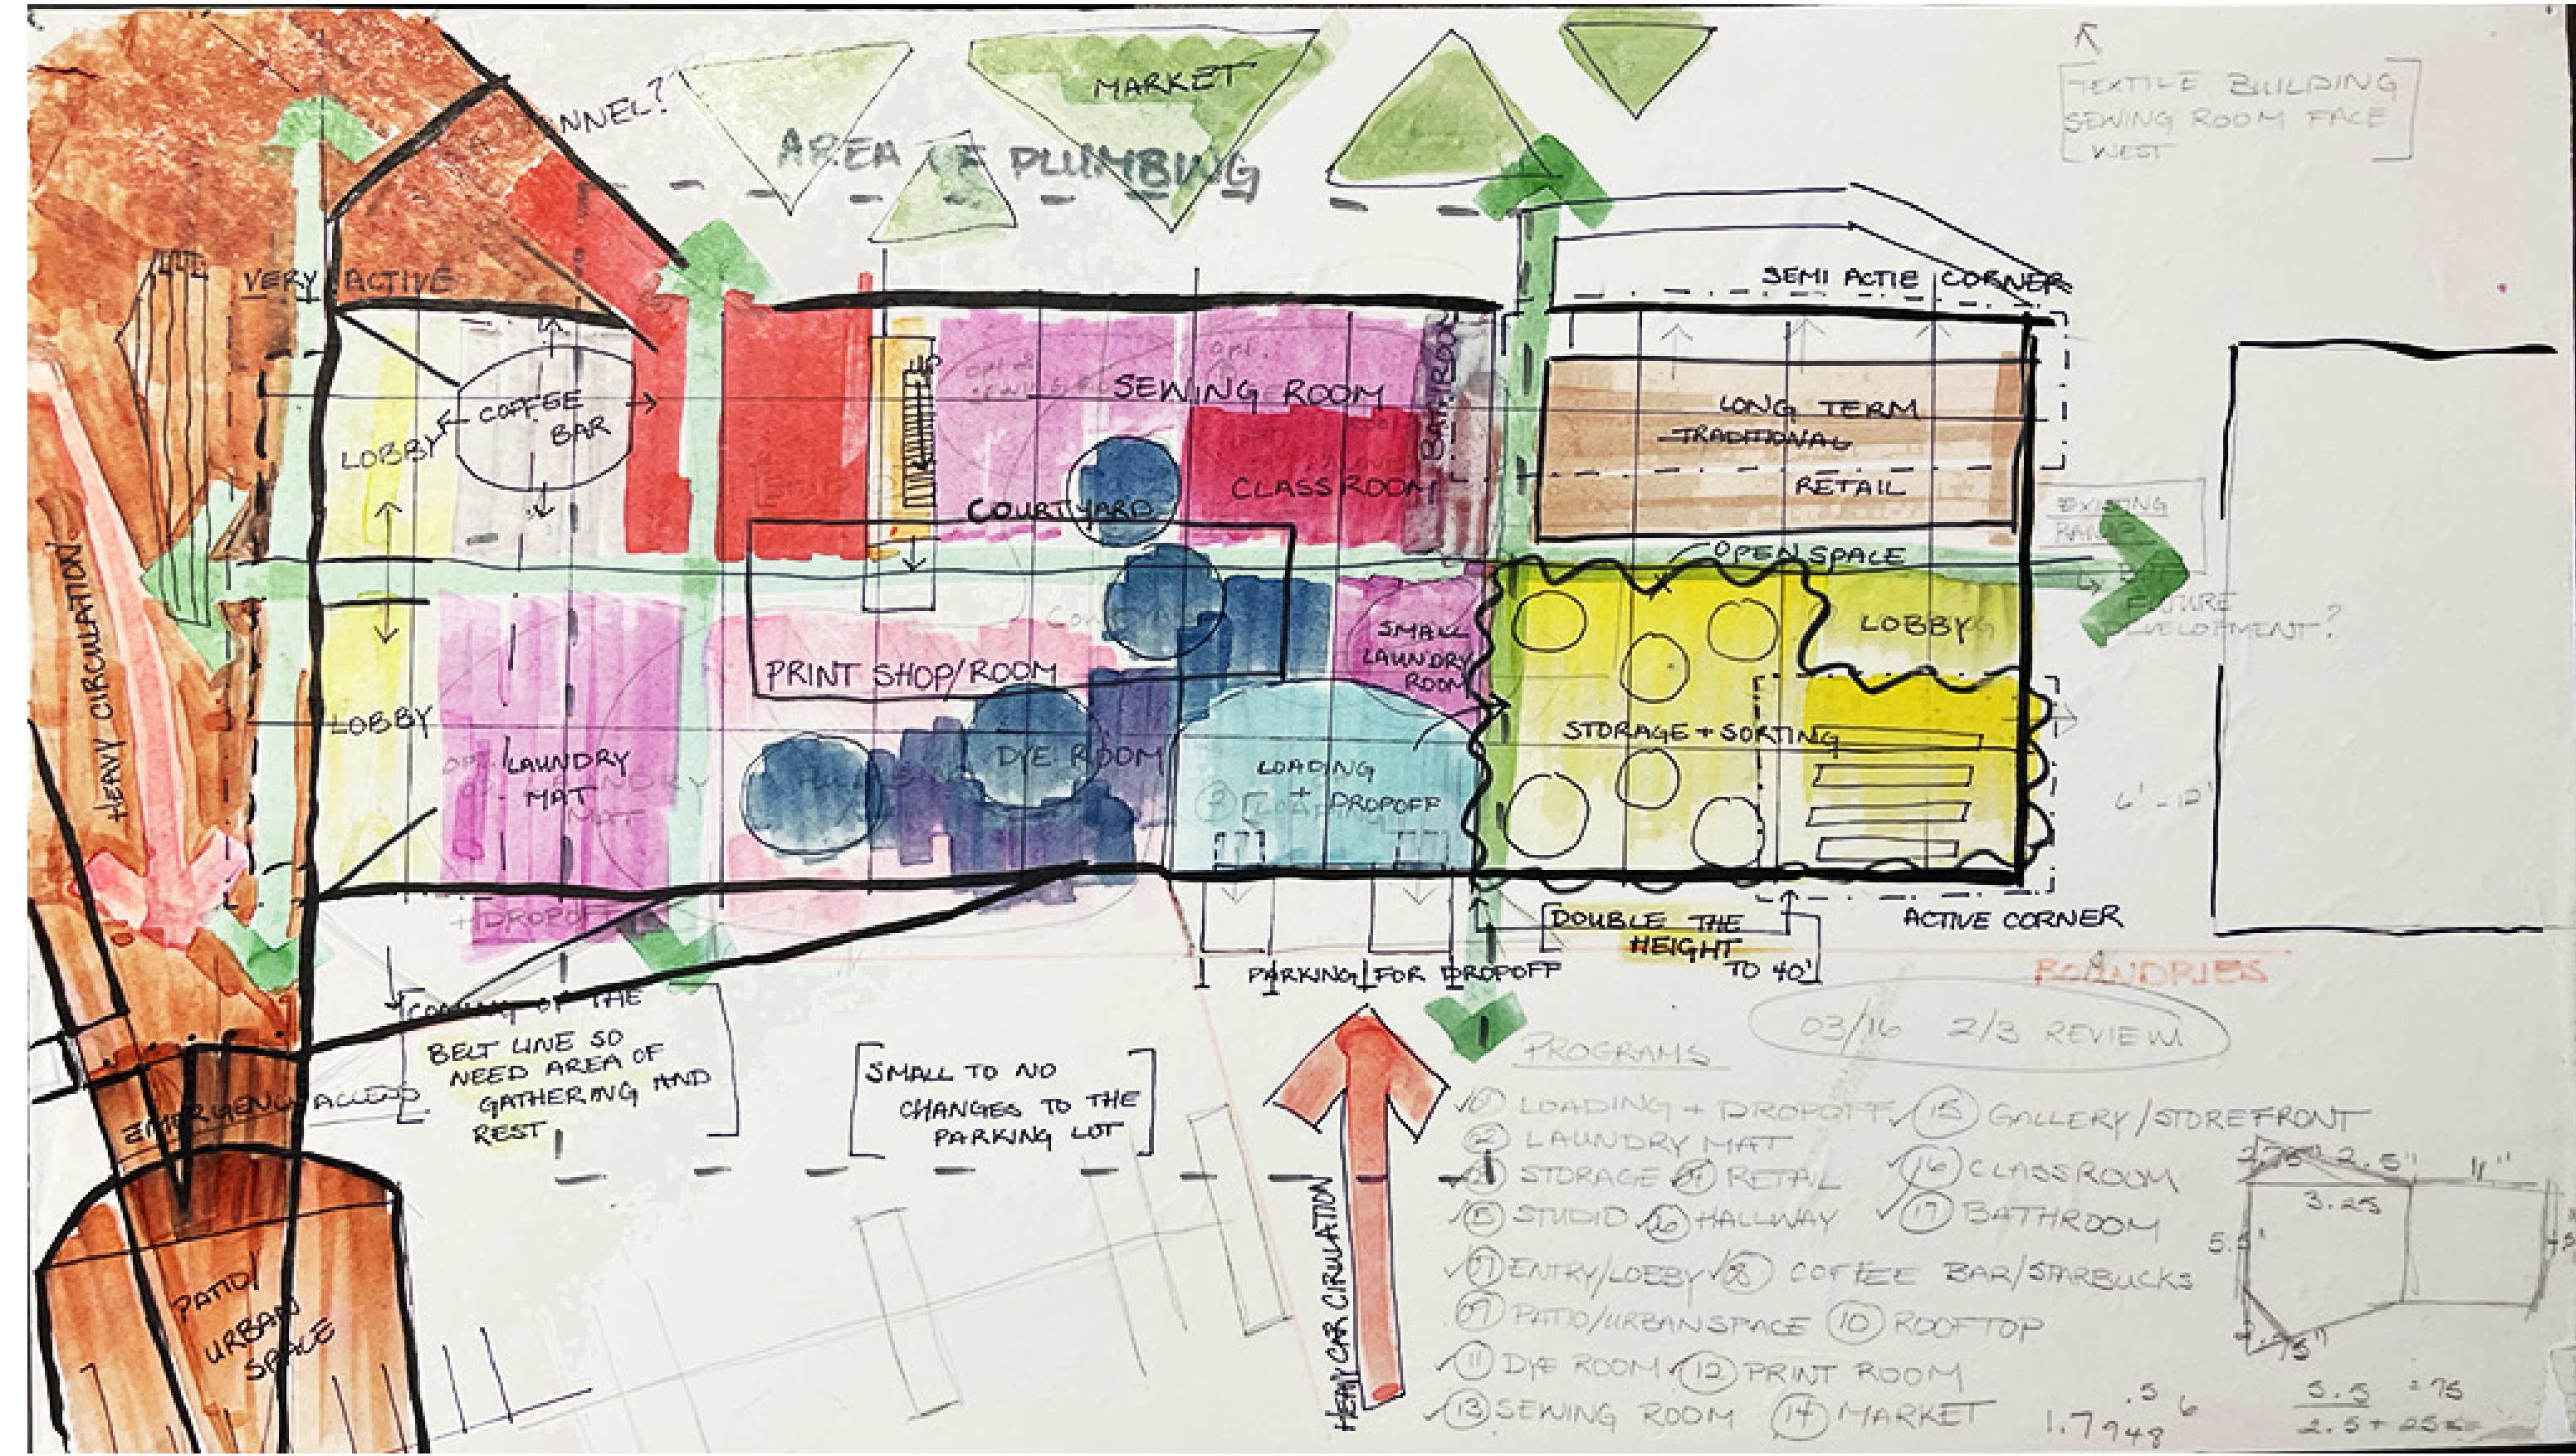 NNEL?
MARKET
AREA OF PLUMBING
TEXTILE BUILDING
SEWING ROOM FACE
WEST
VERY ACTIVE
SEMI ACTIE CORNER
COFFEE
BAR
LOBBY
SEWING ROOM
BATHROOM
CLASSROOM
COURTYARD
LONG TERM
TRADITIONAL
RETAIL
EXISTING
RAMP
OPEN SPACE
FUTURE
DEVELOPMENT?
LOBBY
HEAVY CIRCULATION
PRINT SHOP/ROOM
SMALL
LAUNDRY
ROOM
LOBBY
STORAGE + SORTING
DYE ROOM
LAUNDRY
MAT
LOADING
+ DROPOFF
6' - 12'
+ DROPOFF
DOUBLE THE
HEIGHT
TO 40'
ACTIVE CORNER
PARKING FOR DROPOFF
BOANDRIES
COMING OF THE
BELT LINE SO
NEED AREA OF
GATHERING AND
REST
SMALL TO NO
CHANGES TO THE
PARKING LOT
EMERGENCY ACCESS
PATIO/
URBAN
SPACE
HEAVY CAR CIRULATION
03/16 2/3 REVIEW
PROGRAMS
LOADING + DROPOFF 15 GALLERY/STOREFRONT
2 LAUNDRY MAT
STORAGE RETAIL 16 CLASSROOM
STUDIO HALLWAY 17 BATHROOM
07 ENTRY/LOBBY 8 COFFEE BAR/STARBUCKS
09 PATIO/URBAN SPACE 10 ROOFTOP
11 DYE ROOM 12 PRINT ROOM
13 SEWING ROOM 14 MARKET
2.75" 2.5" 11"
3.25
5.5"
.5 6
1.7948
5.5 275